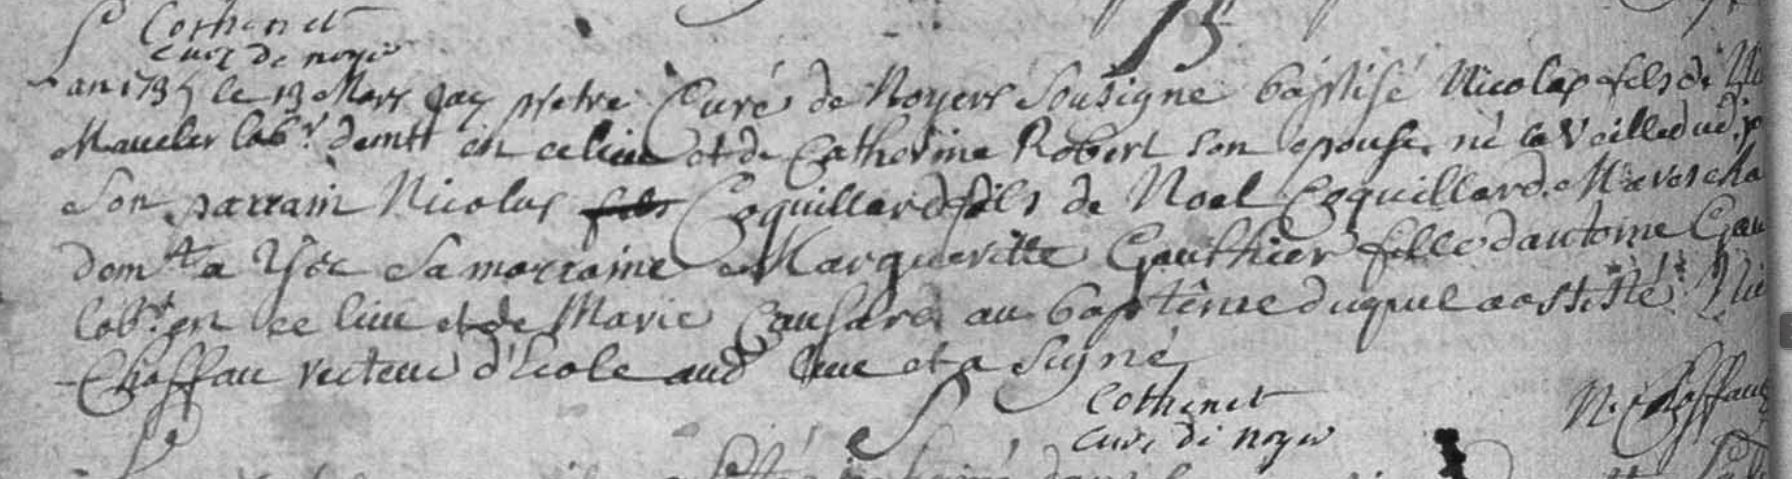 Cothenet
curé de noyer
15
an 1735 le 13 Mars Jay prêtre Curé de Noyers Sousigné baptisé Nicolas fils de Ni
Maucler lab.r demtt en ce lieu et de Catherine Robert son epouse né la veille dud. jo
son parrain Nicolas fils Coquillard fils de Noel Coquillard Marescha
dom.t a Ysse sa marraine Margueritte Gauthier fille d'antoine Gau
lab.r en ce lieu et de Marie Causard au baptême duquel a assisté Nic
Choffau recteur d'Ecole aud lieu et a signé
Cothenet
curé de noyer
N. Choffau